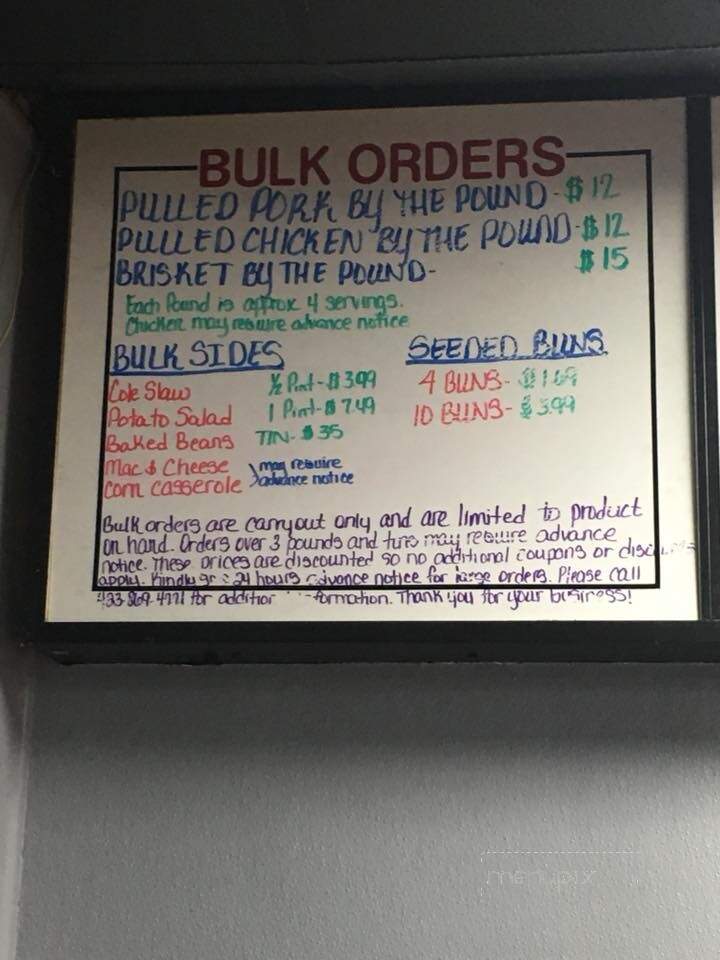 BULK ORDERS
PULLED PORK BY THE POUND - $12
PULLED CHICKEN BY THE POUND - $12
BRISKET BY THE POUND - $15
Each Pound is approx 4 servings.
Chicken may require advance notice
BULK SIDES
Cole Slaw ½ Pint - $3.99
Potato Salad 1 Pint - $7.49
Baked Beans TIN - $35
Mac & Cheese
Corn casserole
may require
advance notice
SEEDED BUNS
4 BUNS - $1.69
10 BUNS - $3.99
Bulk orders are carryout only and are limited to product
on hand. Orders over 3 pounds and tins may require advance
notice. These prices are discounted so no additional coupons or
apply. Kindly 24 hours advance notice for large orders. Please call
for Thank you for your business!
menupix